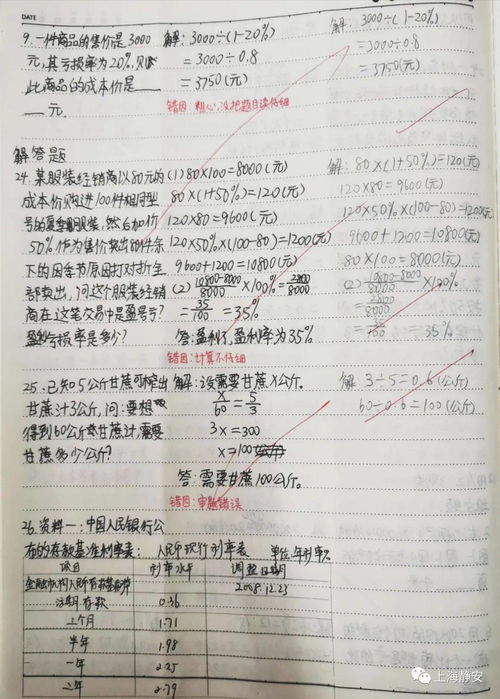 DATE
9.一件商品的售价是3000 解:3000÷(1-20%) 解:3000÷(1-20%)
元,其亏损率为20%,则 =3000÷0.8 =3000÷0.8
此商品的成本价是 =3750(元) =3750(元)
元.
错因:粗心,没把题目读仔细
解答题
24.某服装经销商以80元的 (1)80×100=8000(元) 解:80×(1+50%)=120(元)
成本价购进100件相同型 80×(1+50%)=120(元) 120×80=9600(元)
号的夏季服装,然后加价 120×80=9600(元) 120×50%×(100-80)=1200(元)
50%作为售价卖出80件余 120×50%×(100-80)=1200(元) 9600+1200=10800(元)
下的因季节原因打对折全 9600+1200=10800(元) 80×100=8000(元)
部卖出,问这个服装经销 (2) 10800-8000/8000 ×100%=2800/8000 (2) 10800-8000/8000 ×120%
商在这笔交易中是盈亏? =35/100 =35% =2800/8000
盈利亏损率是多少? 答:盈利了,盈利率为35% = /100 =35%
错因:计算不仔细
25.已知5公斤甘蔗可榨出 解:设需要甘蔗X公斤. 解 3÷5=0.6(公斤)
甘蔗汁3公斤,问:要想 x/60=5/3 60÷0.6=100(公斤)
得到60公斤甘蔗汁,需要 3x=300
甘蔗多少公斤? x=100
答:需要甘蔗100公斤.
错因:审题错误
26.资料一:中国人民银行公
布的存款基准利率表: 人民币现行利率表 单位:年利率%
项目 利率水平 调整日期
2008.12.23
活期存款 0.36
三个月 1.71
半年 1.98
一年 2.25
二年 2.79
上海静安